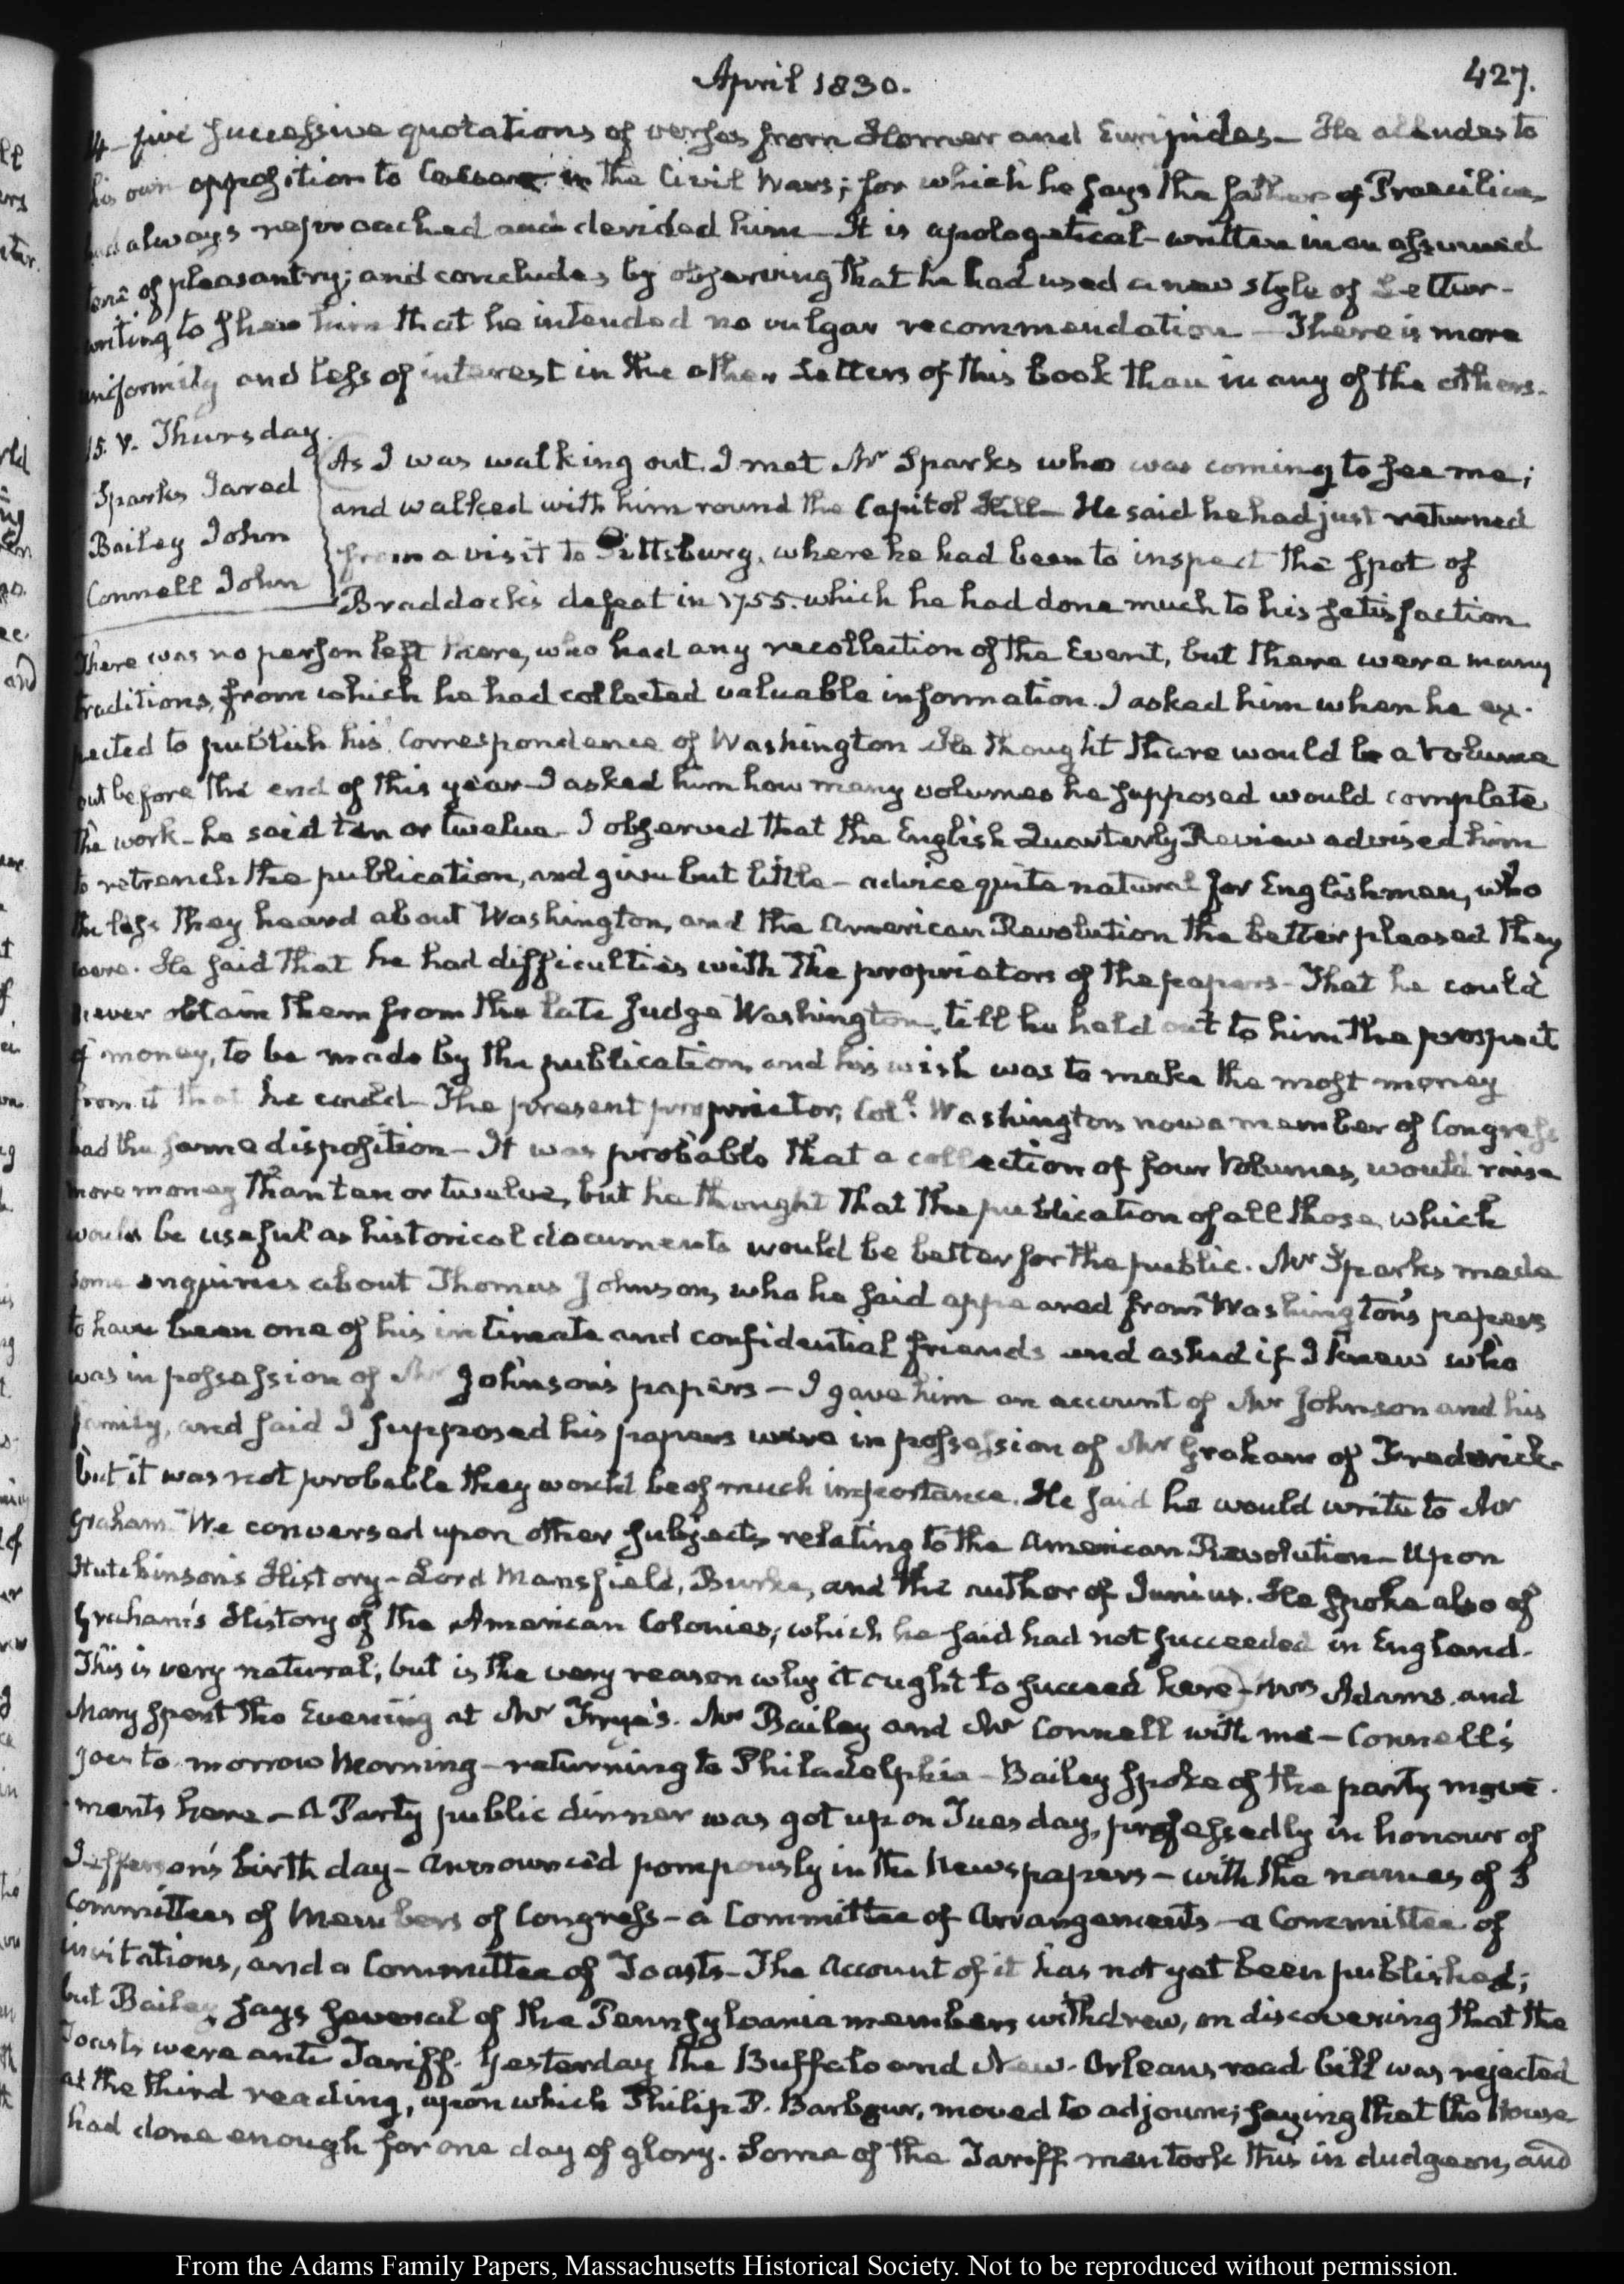 April 1830.
427.
14 – five successive quotations of verses from Homer and Euripides – He alludes to
his own opposition to Caesar in the Civil Wars; for which he says the father of Praecilius
had always reproached and derided him – It is apologetical – written in an assumed
tone of pleasantry; and concludes by observing that he had used a new style of Letter-
writing to shew him that he intended no vulgar recommendation – There is more
uniformity and less of interest in the other Letters of this book than in any of the others.
15. V. Thursday.
Sparks Jared
Bailey John
Connell John
As I was walking out I met Mr Sparks who was coming to see me;
and walked with him round the Capitol Hill – He said he had just returned
from a visit to Pittsburg, where he had been to inspect the spot of
Braddock's defeat in 1755. which he had done much to his satisfaction
There was no person left there, who had any recollection of the Event, but there were many
traditions, from which he had collected valuable information. I asked him when he ex-
pected to publish his Correspondence of Washington He thought there would be a volume
out before the end of this year – I asked him how many volumes he supposed would complete
the work – he said ten or twelve – I observed that the English Quarterly Review advised him
to retrench the publication, and give but little – advice quite natural for Englishmen, who
the less they heard about Washington, and the American Revolution the better pleased they
were. He said that he had difficulties with the proprietors of the papers – That he could
never obtain them from the late Judge Washington, till he held out to him the prospect
of money, to be made by the publication, and his wish was to make the most money
from it that he could – The present proprietor, Coll. Washington now a member of Congress
had the same disposition – It was probable that a collection of four Volumes, would raise
more money than ten or twelve, but he thought that the publication of all those, which
would be useful as historical documents would be better for the public. Mr Sparks made
some enquiries about Thomas Johnson, who he said appeared from Washington's papers
to have been one of his intimate and confidential friends and asked if I knew who
was in possession of Mr Johnson's papers – I gave him an account of Mr Johnson and his
family, and said I supposed his papers were in possession of Mr Graham of Frederick
but it was not probable they would be of much importance. He said he would write to Mr
Graham. We conversed upon other subjects relating to the American Revolution – Upon
Hutchinson's History – Lord Mansfield, Burke, and the author of Junius. He spoke also of
Graham's History of the American Colonies; which he said had not succeeded in England.
This is very natural; but is the very reason why it ought to succeed here – Mrs Adams and
Mary spent the Evening at Mr Frye's. Mr Bailey and Mr Connell with me – Connell's
goes to morrow Morning – returning to Philadelphia – Bailey spoke of the party move-
ments here – A Party public dinner was got up on Tuesday, professedly in honour of
Jefferson's birth day – announced pompously in the Newspapers – with the names of 3
Committees of Members of Congress – a Committee of Arrangements – a Committee of
invitations, and a Committee of Toasts – The Account of it has not yet been published;
but Bailey says several of the Pennsylvania members withdrew, on discovering that the
Toasts were anti Tariff. Yesterday the Buffalo and New-Orleans road bill was rejected
at the third reading, upon which Philip P. Barbour, moved to adjourn; saying that the House
had done enough for one day of glory. Some of the Tariff men took this in dudgeon, and
From the Adams Family Papers, Massachusetts Historical Society. Not to be reproduced without permission.